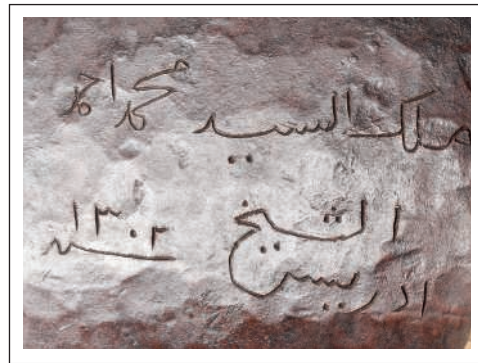 ملك السيد محمد احمد
الشيخ
ادريس
سنه ١٣٠٢